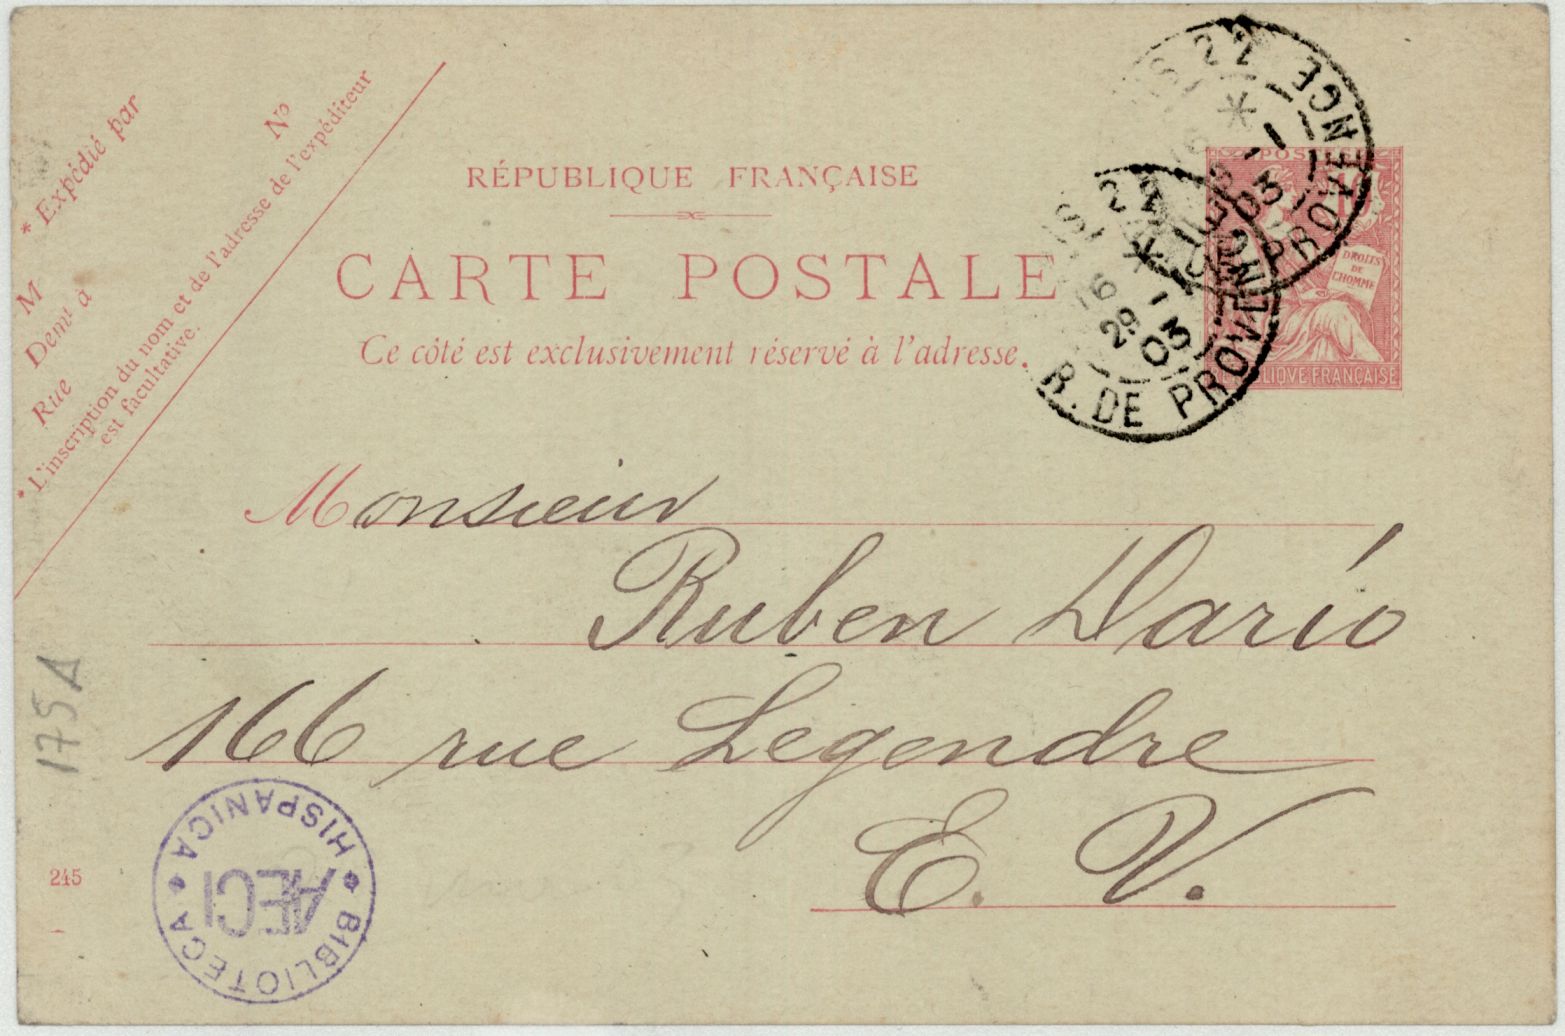 * Expédié par
No
M
Demt à
Rue
* L'inscription du nom et de l'adresse de l'expéditeur
est facultative.
RÉPUBLIQUE FRANÇAISE
CARTE POSTALE
Ce côté est exclusivement réservé à l'adresse.
22
PROVENCE
-1
03
22
16
29 -1
03
R. DE PROVENCE
POSTES
DROITS
DE
L'HOMME
FRANÇAISE
Monsieur
Ruben Darío
166 rue Legendre
E. V.
175A
245
BIBLIOTECA HISPANICA
AECI